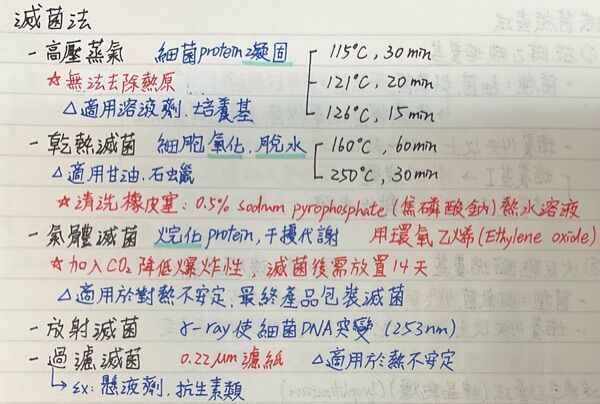 滅菌法
- 高壓蒸氣 細菌protein之凝固 115°C, 30min
☆無法去除熱原 121°C, 20min
△適用溶液劑、培養基 126°C, 15min
- 乾熱滅菌 細胞氧化、脫水 160°C, 60min
△適用甘油、石蠟 250°C, 30min
☆清洗橡皮塞: 0.5% sodium pyrophosphate (焦磷酸鈉) 熱水溶液
- 氣體滅菌 烷化protein, 干擾代謝 用環氧乙烯(Ethylene oxide)
☆加入CO₂降低爆炸性、滅菌後需放置14天
△適用於對熱不安定、最終產品包裝滅菌
- 放射滅菌 γ-ray使細菌DNA突變 (253nm)
- 過濾滅菌 0.22μm濾紙 △適用於熱不安定
↳ex: 懸液劑、抗生素類